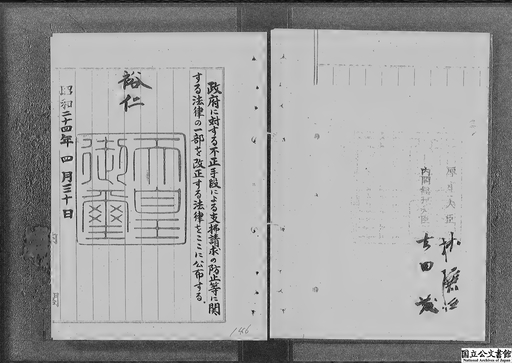 厚生大臣
林譲治
内閣総理大臣
吉田茂
政府に対する不正手段による支拂請求の防止等に関
する法律の一部を改正する法律をここに公布する。
裕仁
天皇
御璽
昭和二十四年四月三十日
146
国立公文書館
National Archives of Japan